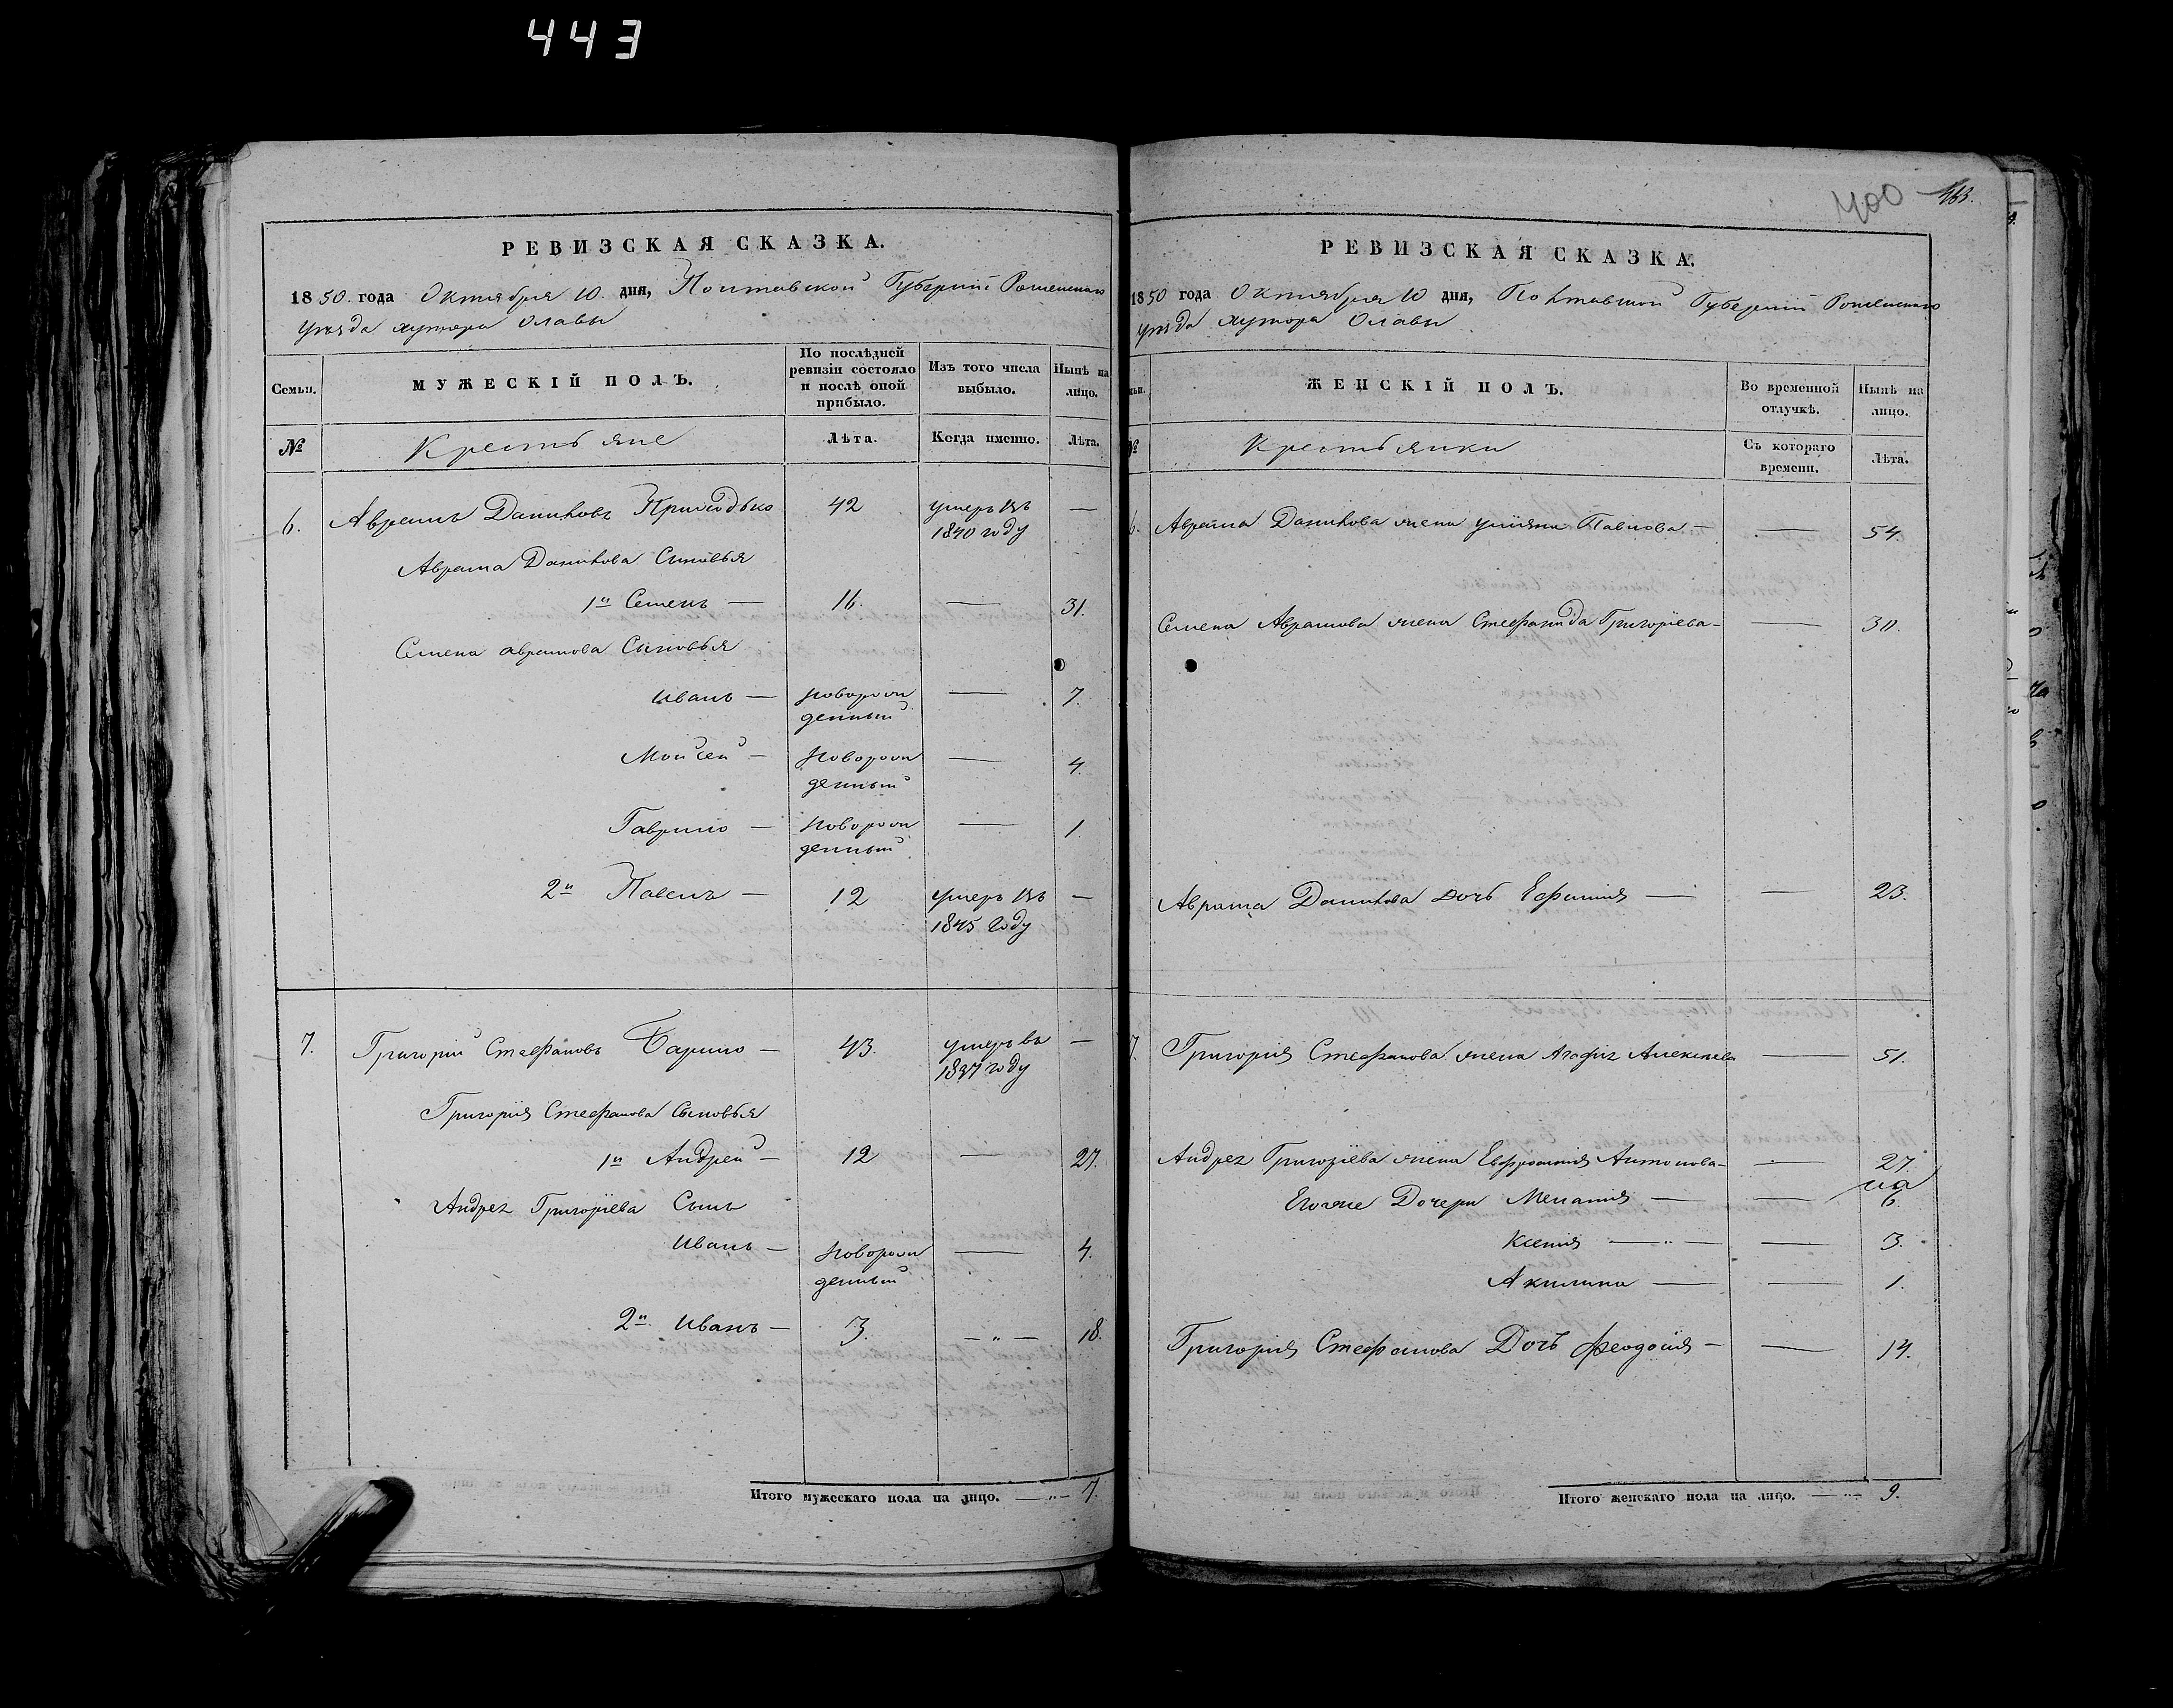 443
РЕВИЗСКАЯ СКАЗКА.
1850. года Октября 10. дня, Полтавской Губерніи Роменскаго
уѣзда хутора Олавы
Семьи. МУЖЕСКІЙ ПОЛЪ. По послѣдней ревизіи состояло и послѣ оной прибыло. Изъ того числа выбыло. Нынѣ на лицо.
№ Крестьяне Лѣта. Когда именно. Лѣта.
6. Аврамъ Даниловъ Приходько 42 умеръ въ —
1840 году
Аврама Данилова Сыновья
1й Семенъ — 16. — 31.
Семена Аврамова Сыновья
Иванъ — Новорож — 7.
денный
Моисей — Новорож — 4.
денный
Гаврило — Новорож — 1.
денный
2й Павелъ — 12 умеръ въ —
1845 году
7. Григорій Стефановъ Барило — 43. умеръ въ —
1837 году
Григорія Стефанова Сыновья
1й Андрей — 12 — 27.
Андрея Григоріева Сынъ
Иванъ — Новорож — 4.
денный
2й Иванъ — 3. — „ — 18.
Итого мужескаго пола на лицо. — „ — 7.
400 463.
РЕВИЗСКАЯ СКАЗКА.
1850 года Октября 10 дня, Полтавской Губерніи Роменскаго
уѣзда хутора Олавы
ЖЕНСКІЙ ПОЛЪ. Во временной отлучкѣ. Нынѣ на лицо.
№ Крестьянки Съ котораго времени. Лѣта.
6. Аврама Данилова жена Уліяна Павлова — — 54.
Семена Аврамова жена Стефанида Григоріева — — 30.
Аврама Данилова Дочь Ефимія — — 23.
7. Григорія Стефанова жена Агафія Алексѣева — 51.
Андрея Григоріева жена Евфросинія Антонова — — 27.
Егоже Дочери Меланія — — 6.
Ксенія — „ — — 3.
Акилина — — 1.
Григорія Стефанова Дочь Феодосія — — 14.
Итого женскаго пола на лицо. — „ — 9.